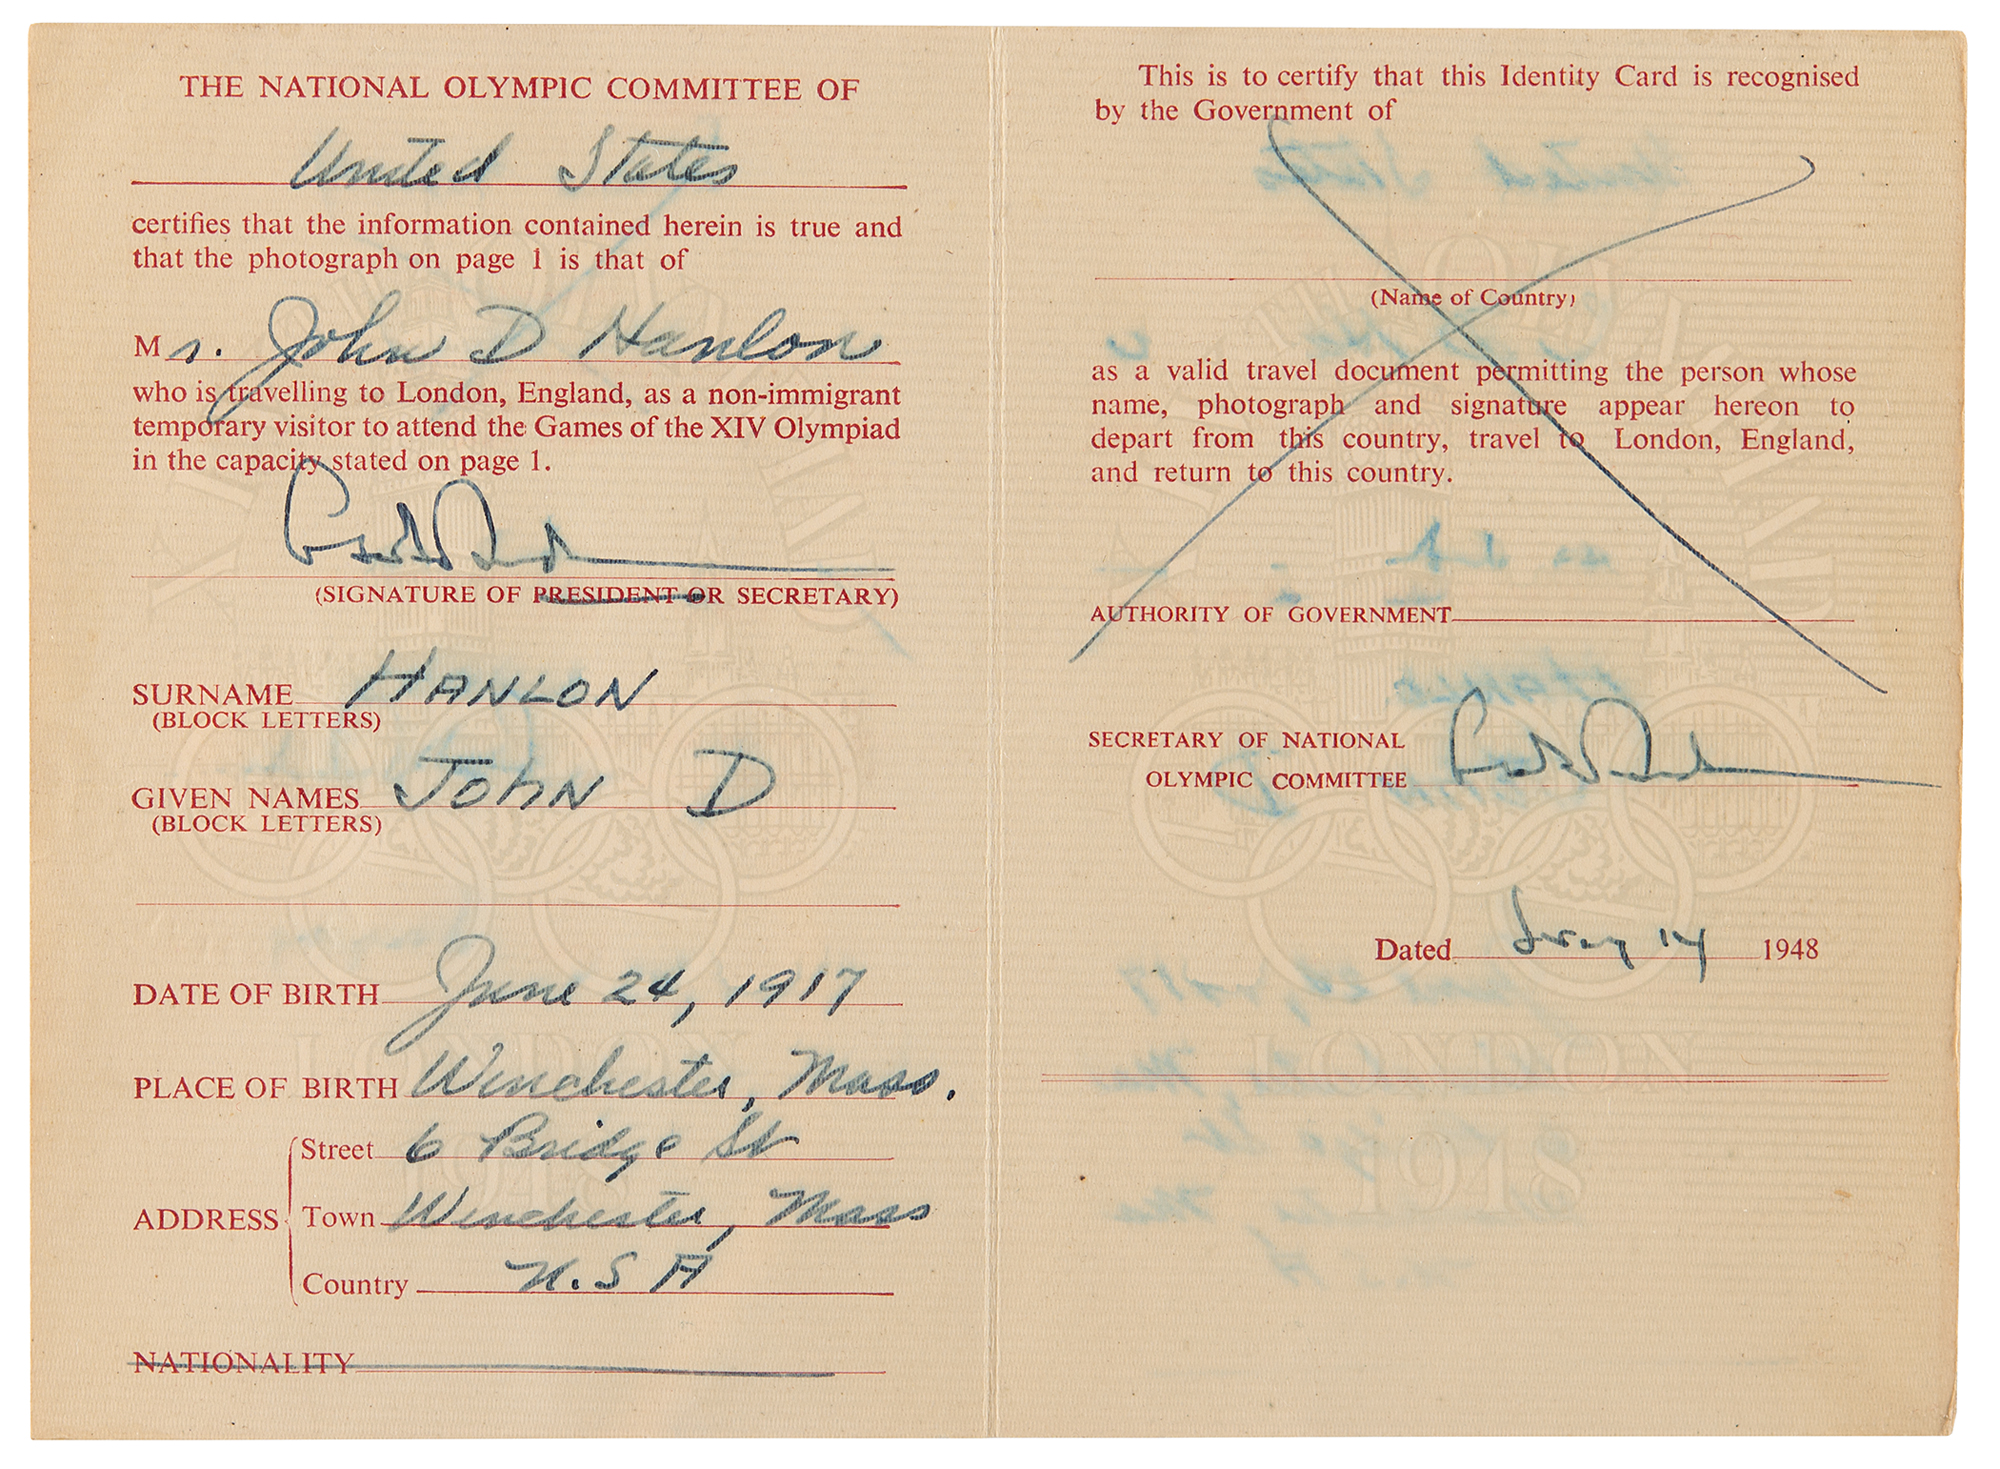 THE NATIONAL OLYMPIC COMMITTEE OF
United States
certifies that the information contained herein is true and
that the photograph on page 1 is that of
Mr. John D Hanlon
who is travelling to London, England, as a non-immigrant
temporary visitor to attend the Games of the XIV Olympiad
in the capacity stated on page 1.
(SIGNATURE OF PRESIDENT OR SECRETARY)
SURNAME HANLON
(BLOCK LETTERS)
GIVEN NAMES JOHN D
(BLOCK LETTERS)
DATE OF BIRTH June 24, 1917
PLACE OF BIRTH Winchester, Mass.
ADDRESS
Street 6 Bridge St
Town Winchester, Mass
Country U.S A
NATIONALITY
This is to certify that this Identity Card is recognised
by the Government of
(Name of Country)
as a valid travel document permitting the person whose
name, photograph and signature appear hereon to
depart from this country, travel to London, England,
and return to this country.
AUTHORITY OF GOVERNMENT
SECRETARY OF NATIONAL
OLYMPIC COMMITTEE
Dated 14 1948
LONDON
1948